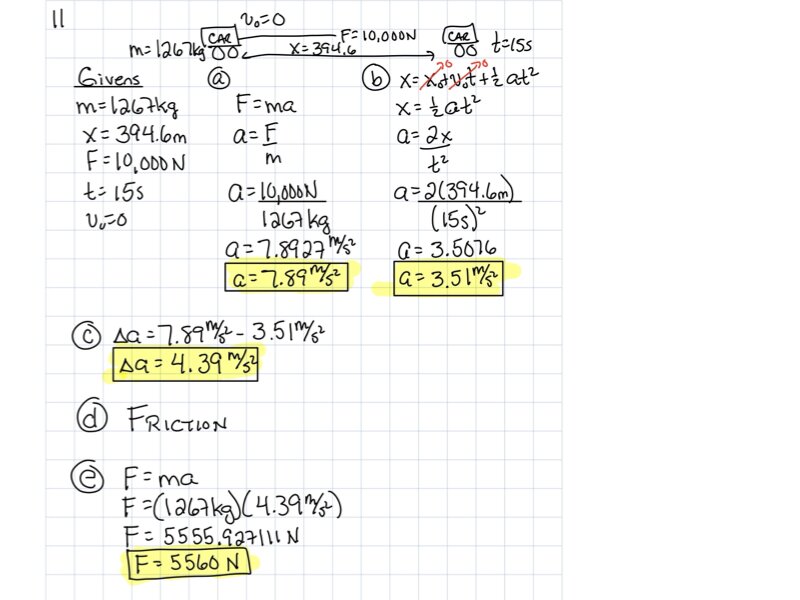 11
v₀=0
m=1267kg CAR F=10,000N CAR t=15s
x=394.6
Givens
m=1267kg
x=394.6m
F=10,000N
t=15s
v₀=0
ⓐ
F=ma
a=F/m
a=10,000N/1267kg
a=7.8927 m/s²
a=7.89 m/s²
ⓑ x=x₀+v₀t+½at²
0 0
x=½at²
a=2x/t²
a=2(394.6m)/(15s)²
a=3.5076
a=3.51 m/s²
ⓒ Δa=7.89 m/s² - 3.51 m/s²
Δa=4.39 m/s²
ⓓ FRICTION
ⓔ F=ma
F=(1267kg)(4.39 m/s²)
F=5555.927111N
F=5560 N